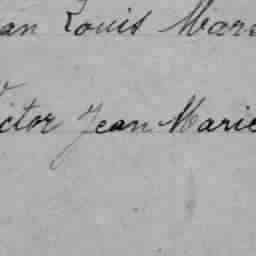 an Louis Mar
ictor Jean Marie